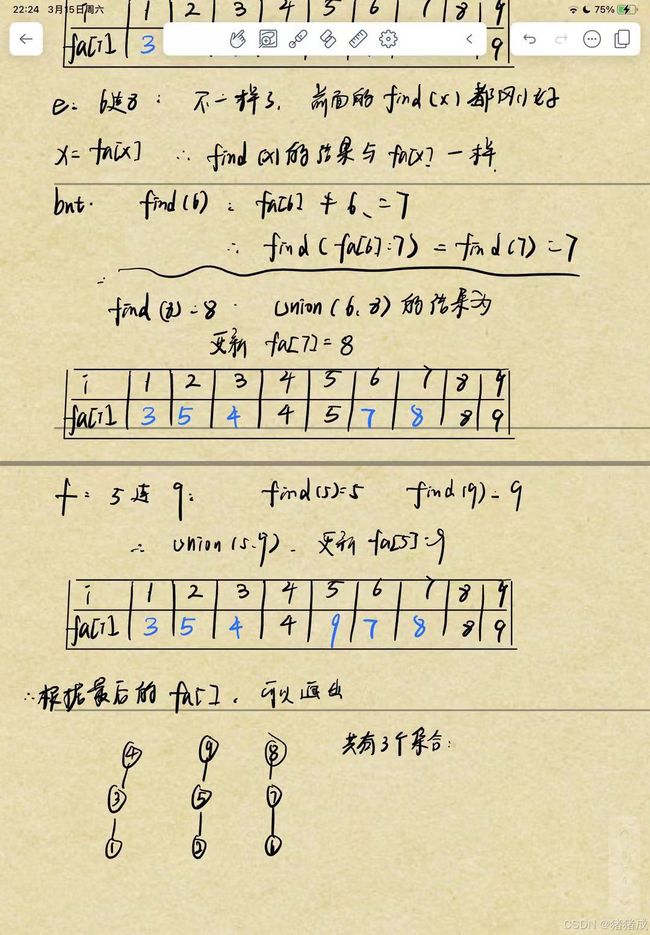 22:24 3月15日周六 75%
i 1 2 3 4 5 6 7 8 9
fa[i] 3 9
e: 6连8: 不一样了, 前面的find(x)都刚好
x=fa[x] ∴ find(x)的结果与fa[x]一样
but. find(6): fa[6] ≠ 6, =7
∴ find(fa[6]:7) = find(7) = 7
find(8)=8. union(6,8)的结果为
更新 fa[7]=8
i 1 2 3 4 5 6 7 8 9
fa[i] 3 5 4 4 5 7 8 8 9
f: 5连9: find(5)=5 find(9)=9
∴ union(5,9), 更新fa[5]=9
i 1 2 3 4 5 6 7 8 9
fa[i] 3 5 4 4 9 7 8 8 9
∴根据最后的 fa[], 可以画出
共有3个集合:
4 9 8
3 5 7
1 2 6
CSDN @猪猪成